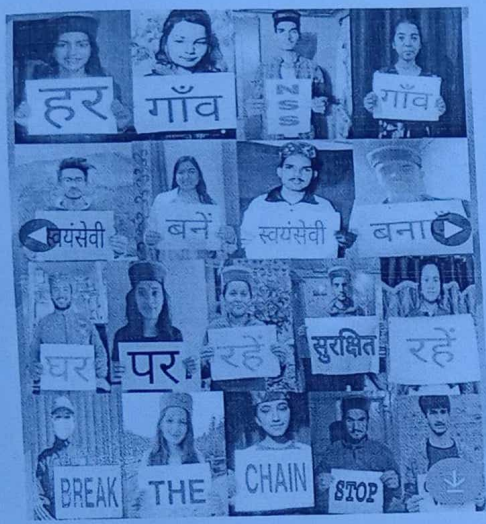 हर गाँव NSS गाँव
स्वयंसेवी बनें स्वयंसेवी
घर पर रहें सुरक्षित रहें
BREAK THE CHAIN STOP